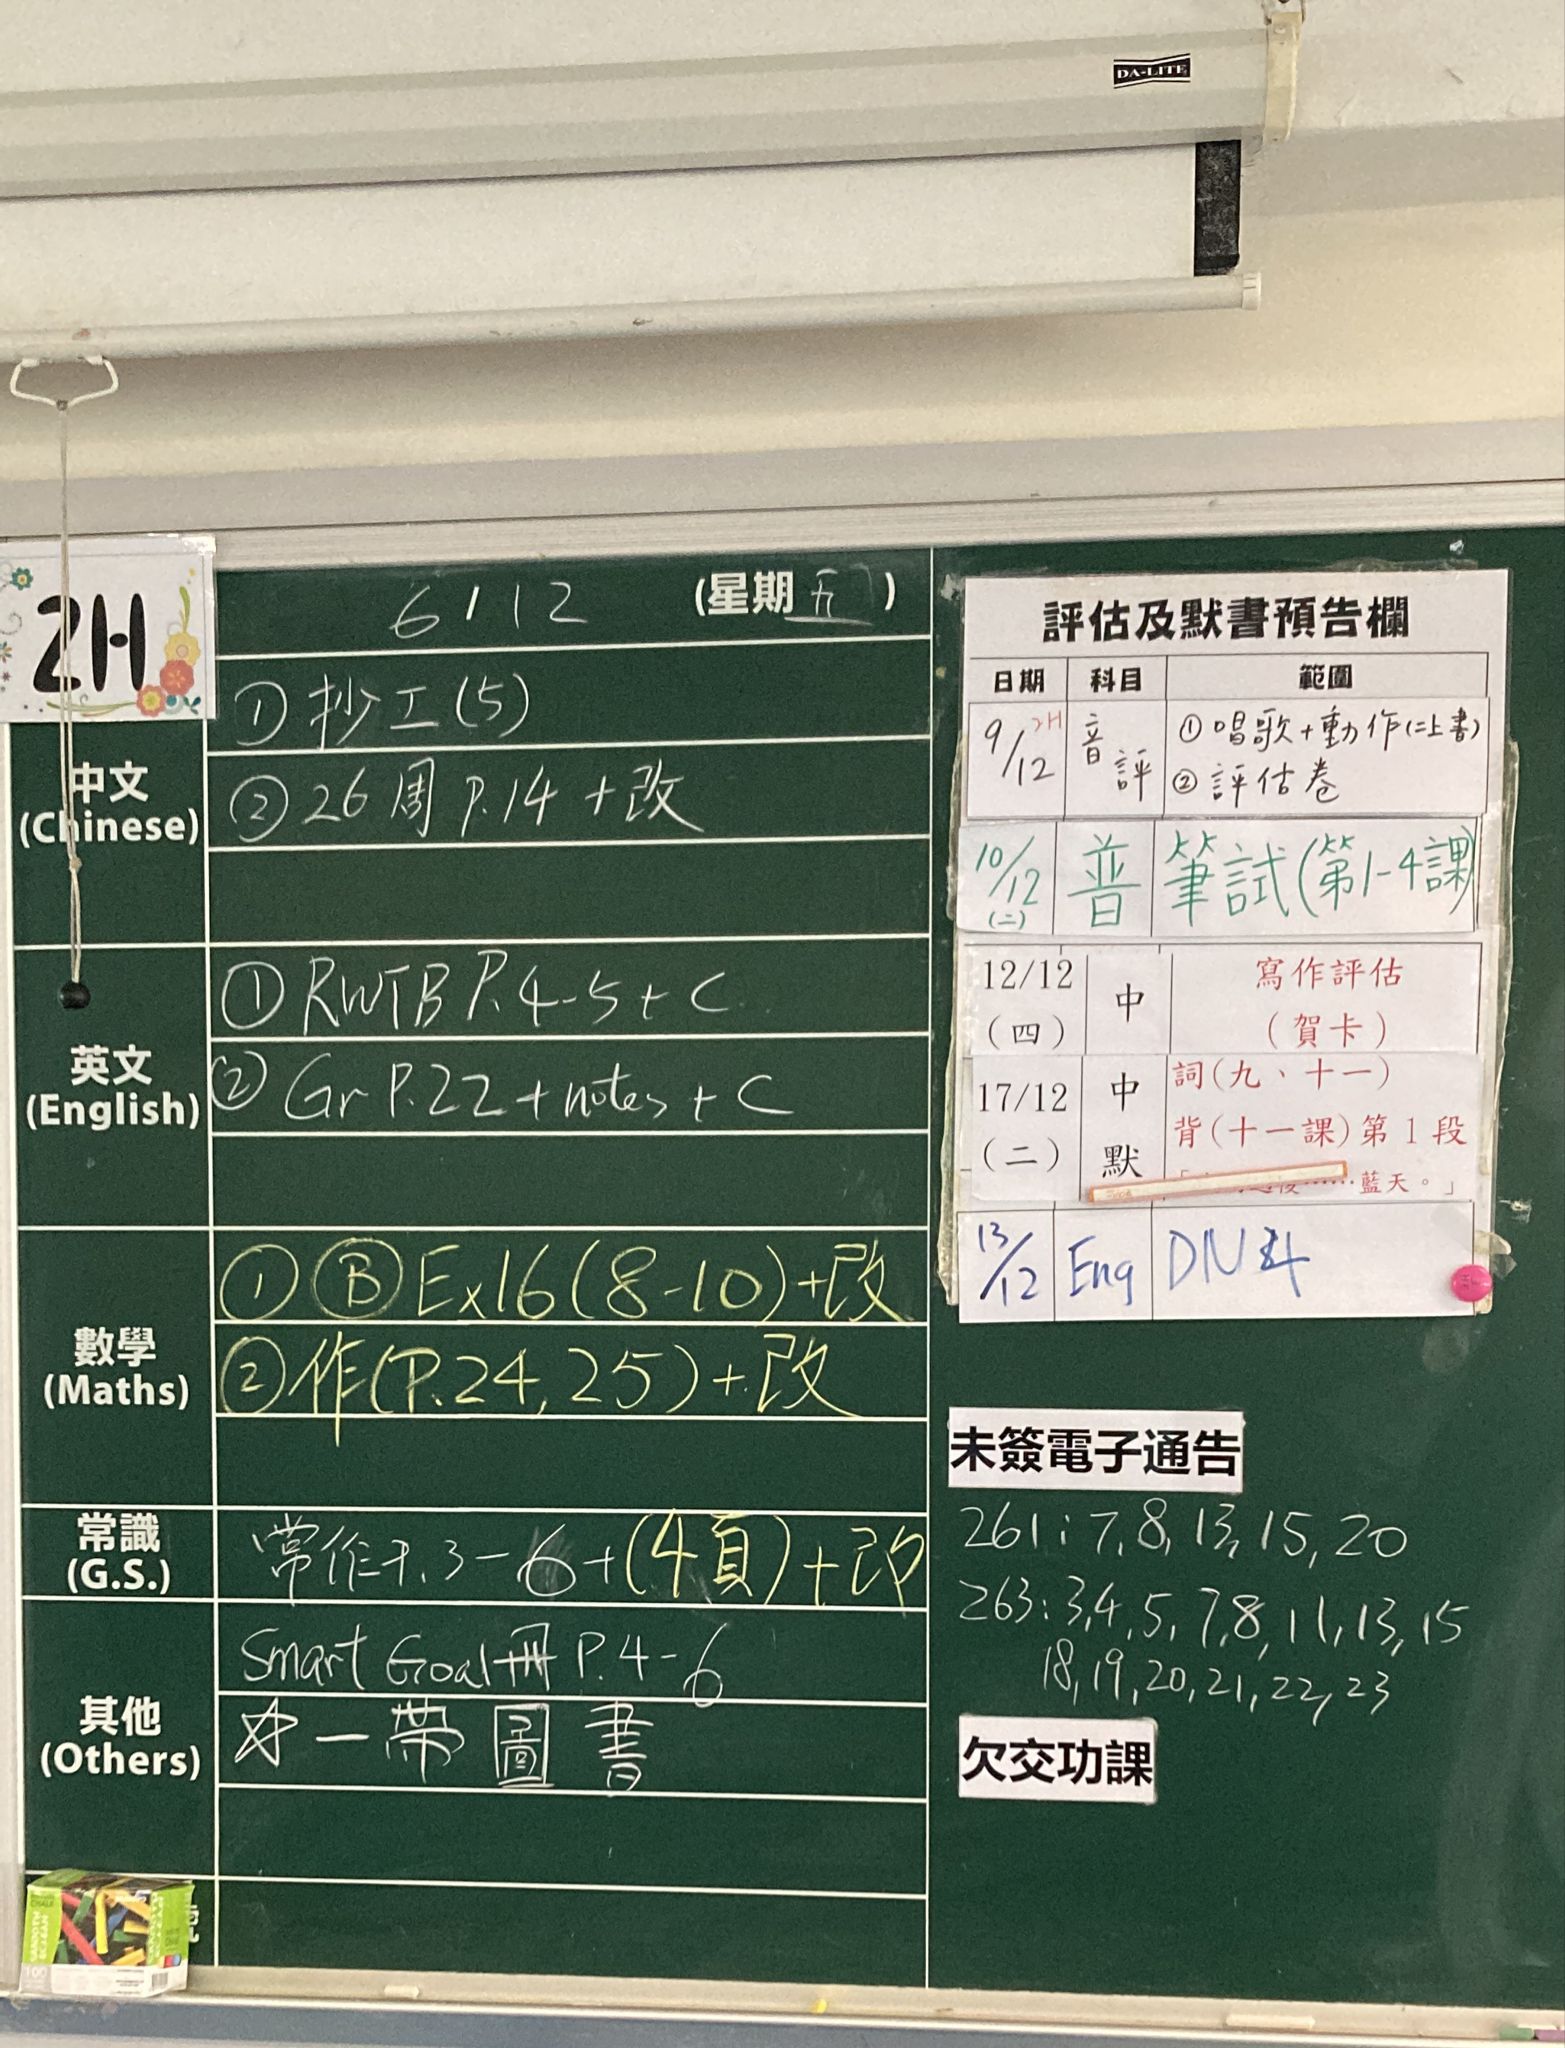 DA-LITE
2H
6/12 (星期五)
中文
(Chinese)
① 抄工(5)
② 26周 P.14 + 改
英文
(English)
① RWTB P.4-5 + C
② Gr P.22 + notes + C
數學
(Maths)
① Ⓑ Ex16 (8-10) + 改
② 作(P.24, 25) + 改
常識
(G.S.)
常作 P.3-6 + (4頁) + 改
其他
(Others)
Smart Goal冊 P.4-6
☆一帶圖書
評估及默書預告欄
日期 科目 範圍
9/12 2H 音評 ① 唱歌+動作(二上書)
② 評估卷
10/12 (二) 普 筆試(第1-4課)
12/12 (四) 中 寫作評估
(賀卡)
17/12 (二) 中默 詞(九、十一)
背(十一課)第1段
……藍天。」
13/12 Eng DN4
未簽電子通告
261: 7, 8, 13, 15, 20
263: 3, 4, 5, 7, 8, 11, 13, 15
18, 19, 20, 21, 22, 23
欠交功課